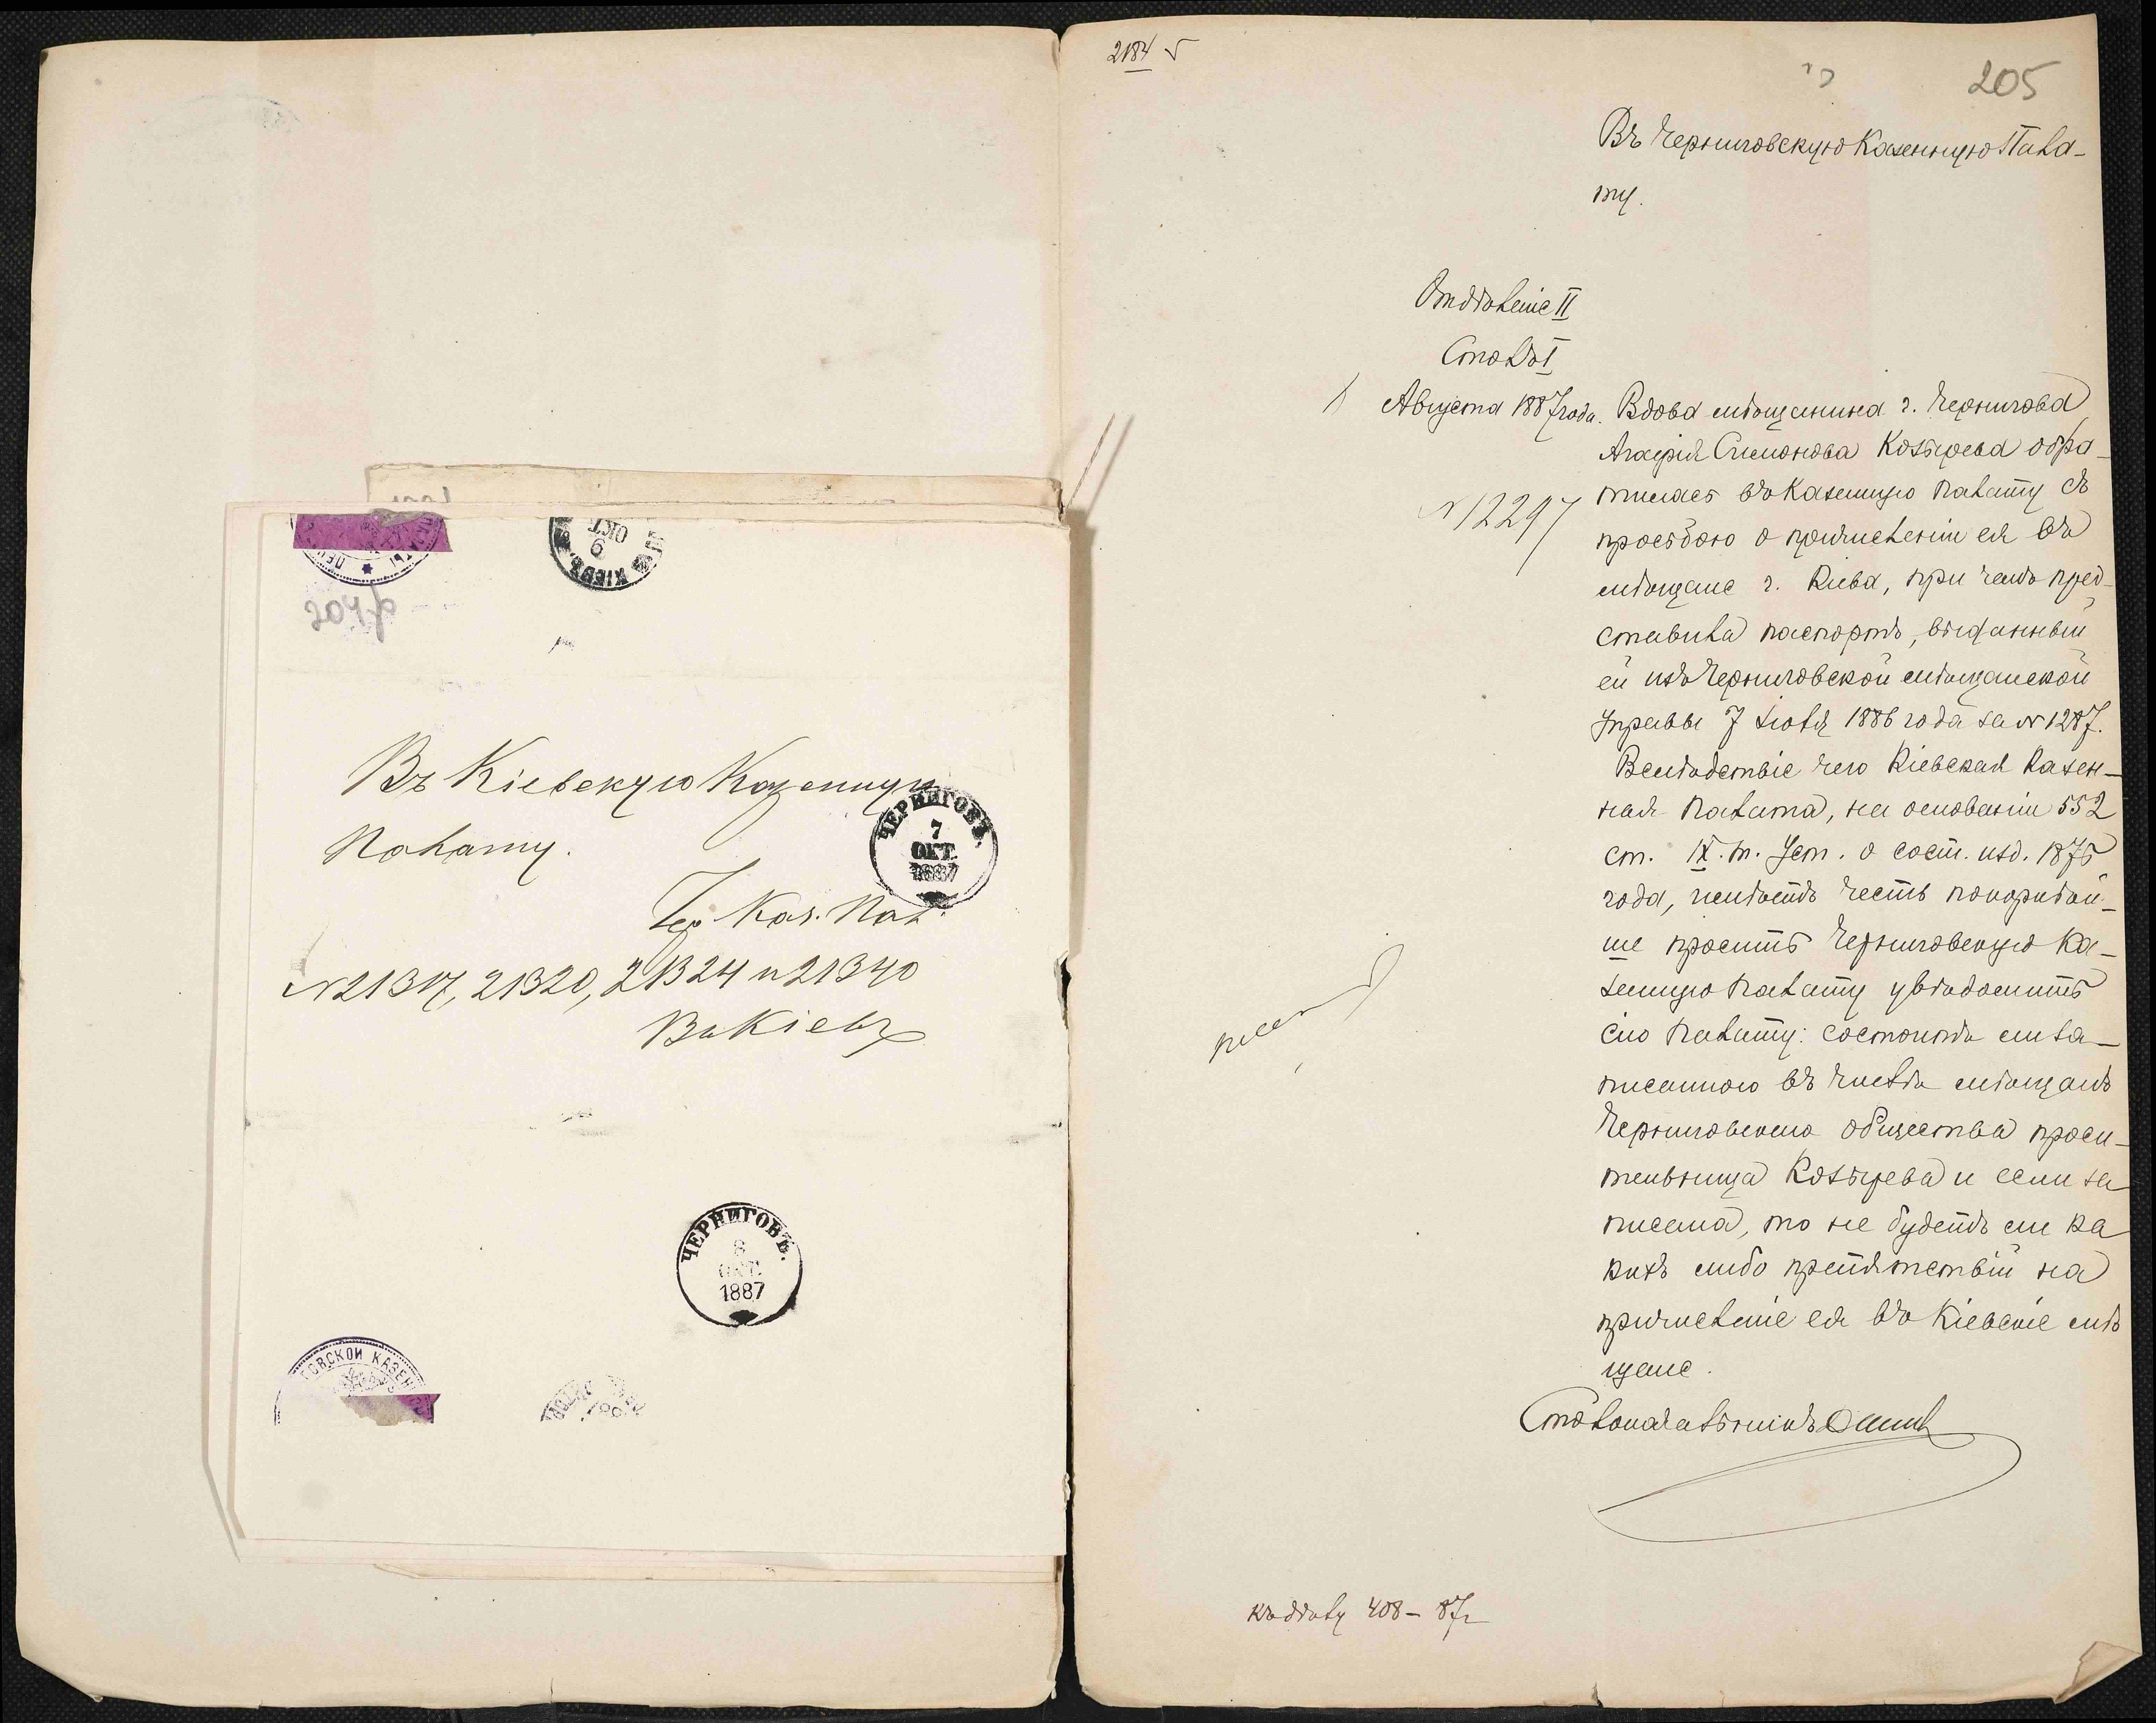 204
9
ОКТ
КІЕВЪ
Въ Кіевскую Казенную
Палату.
ЧЕРНИГОВЪ.
7
ОКТ.
1887
Чер. Каз. Пал.
№ 21317, 21320, 21324 и 21340
Въ Кіевъ
ЧЕРНИГОВЪ.
8
ОКТ.
1887
ГОВСКОЙ КАЗЕН
2184
205
Въ Черниговскую Казенную Пала-
ту.
Отдѣленіе II
Столъ I
Августа 1887 года.
№ 12297
Вдова мѣщанина г. Чернигова
Агафія Симонова Козырева обра-
тилась въ Казенную Палату съ
просьбою о причисленіи ея въ
мѣщане г. Кіева, при чемъ пред-
ставила паспортъ, выданный
ей изъ Черниговской мѣщанской
Управы 7 Іюля 1886 года за № 1287.
Вслѣдствіе чего Кіевская Казен-
ная Палата, на основаніи 552
ст. IX. т. Уст. о сост. изд. 1876
года, имѣетъ честь покорнѣй-
ше просить Черниговскую Ка-
зенную Палату увѣдомить
сію Палату: состоитъ ли за-
писанною въ числѣ мѣщанъ
Черниговскаго общества проси-
тельница Козырева и если за
писана, то не будетъ ли ка
кихъ либо препятствій на
причисленіе ея въ Кіевскіе мѣ
щане.
Столоначальникъ
къ дѣлу 408 – 87 г